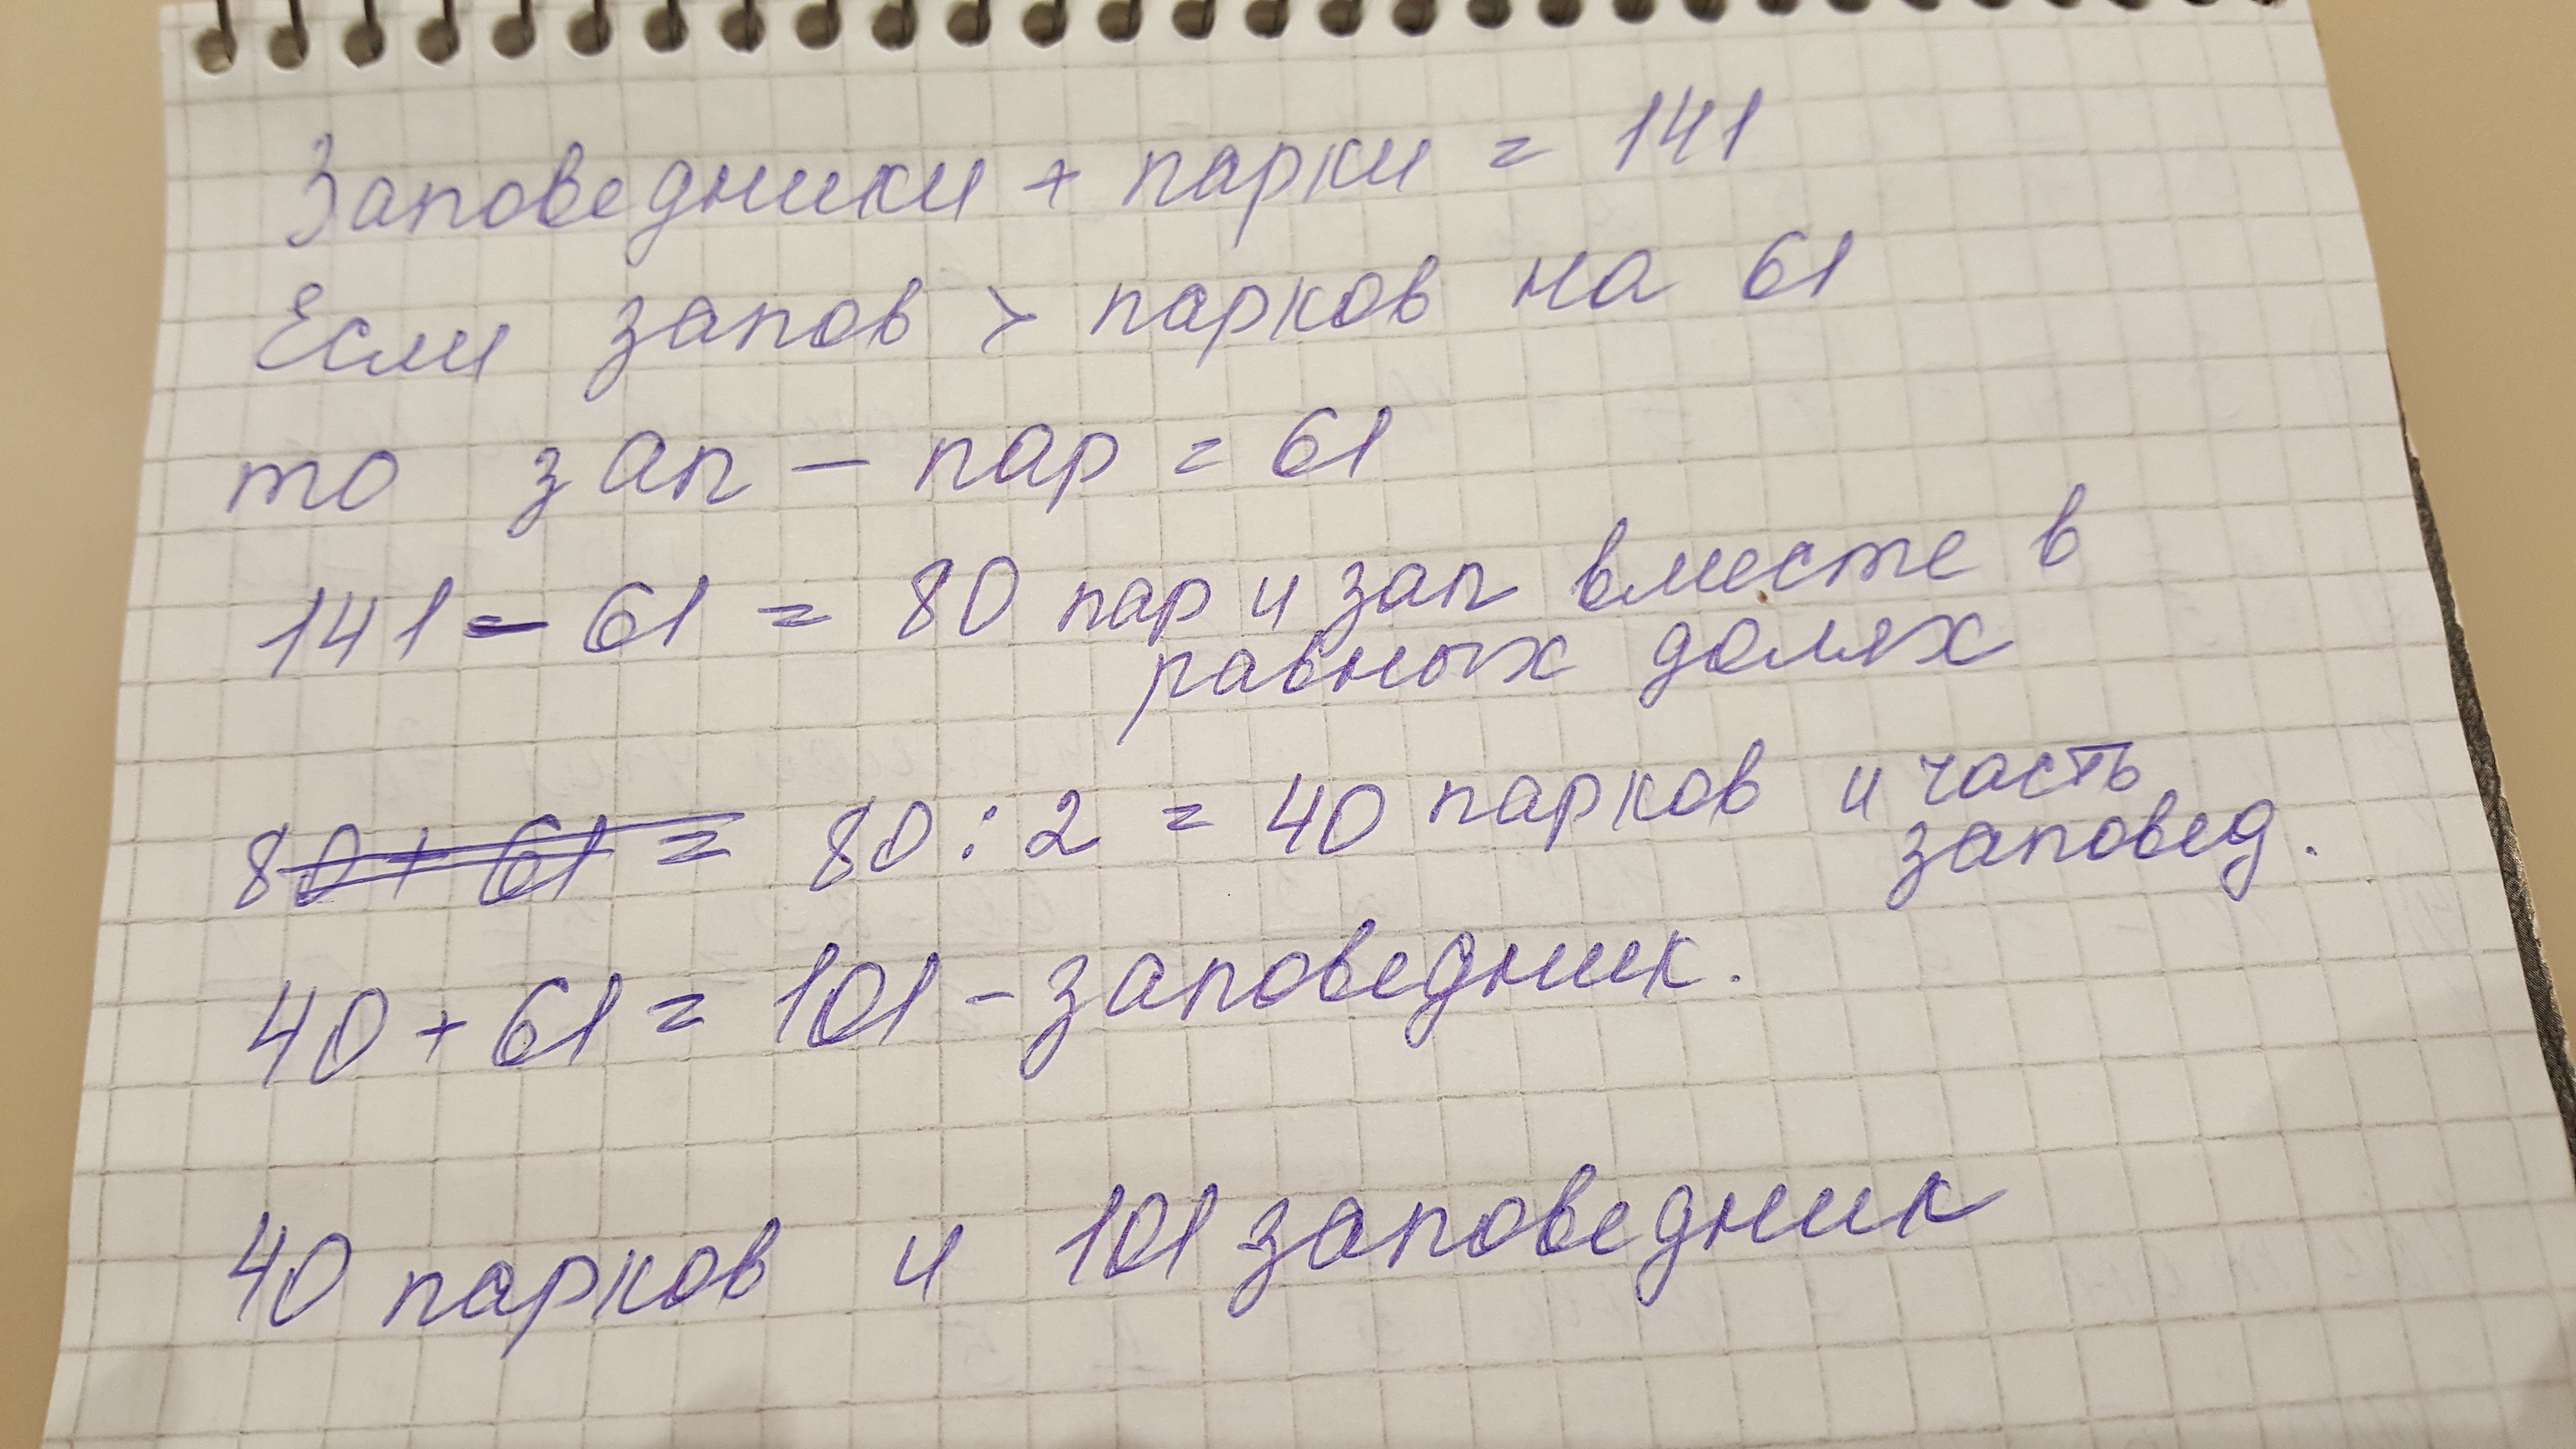 Заповедники + парки = 141
Если запов > парков на 61
то зап – пар = 61
141 – 61 = 80 пар и зап вместе в
равных долях
80 + 61 = 80 : 2 = 40 парков и часть
заповед.
40 + 61 = 101 – заповедник.
40 парков и 101 заповедник